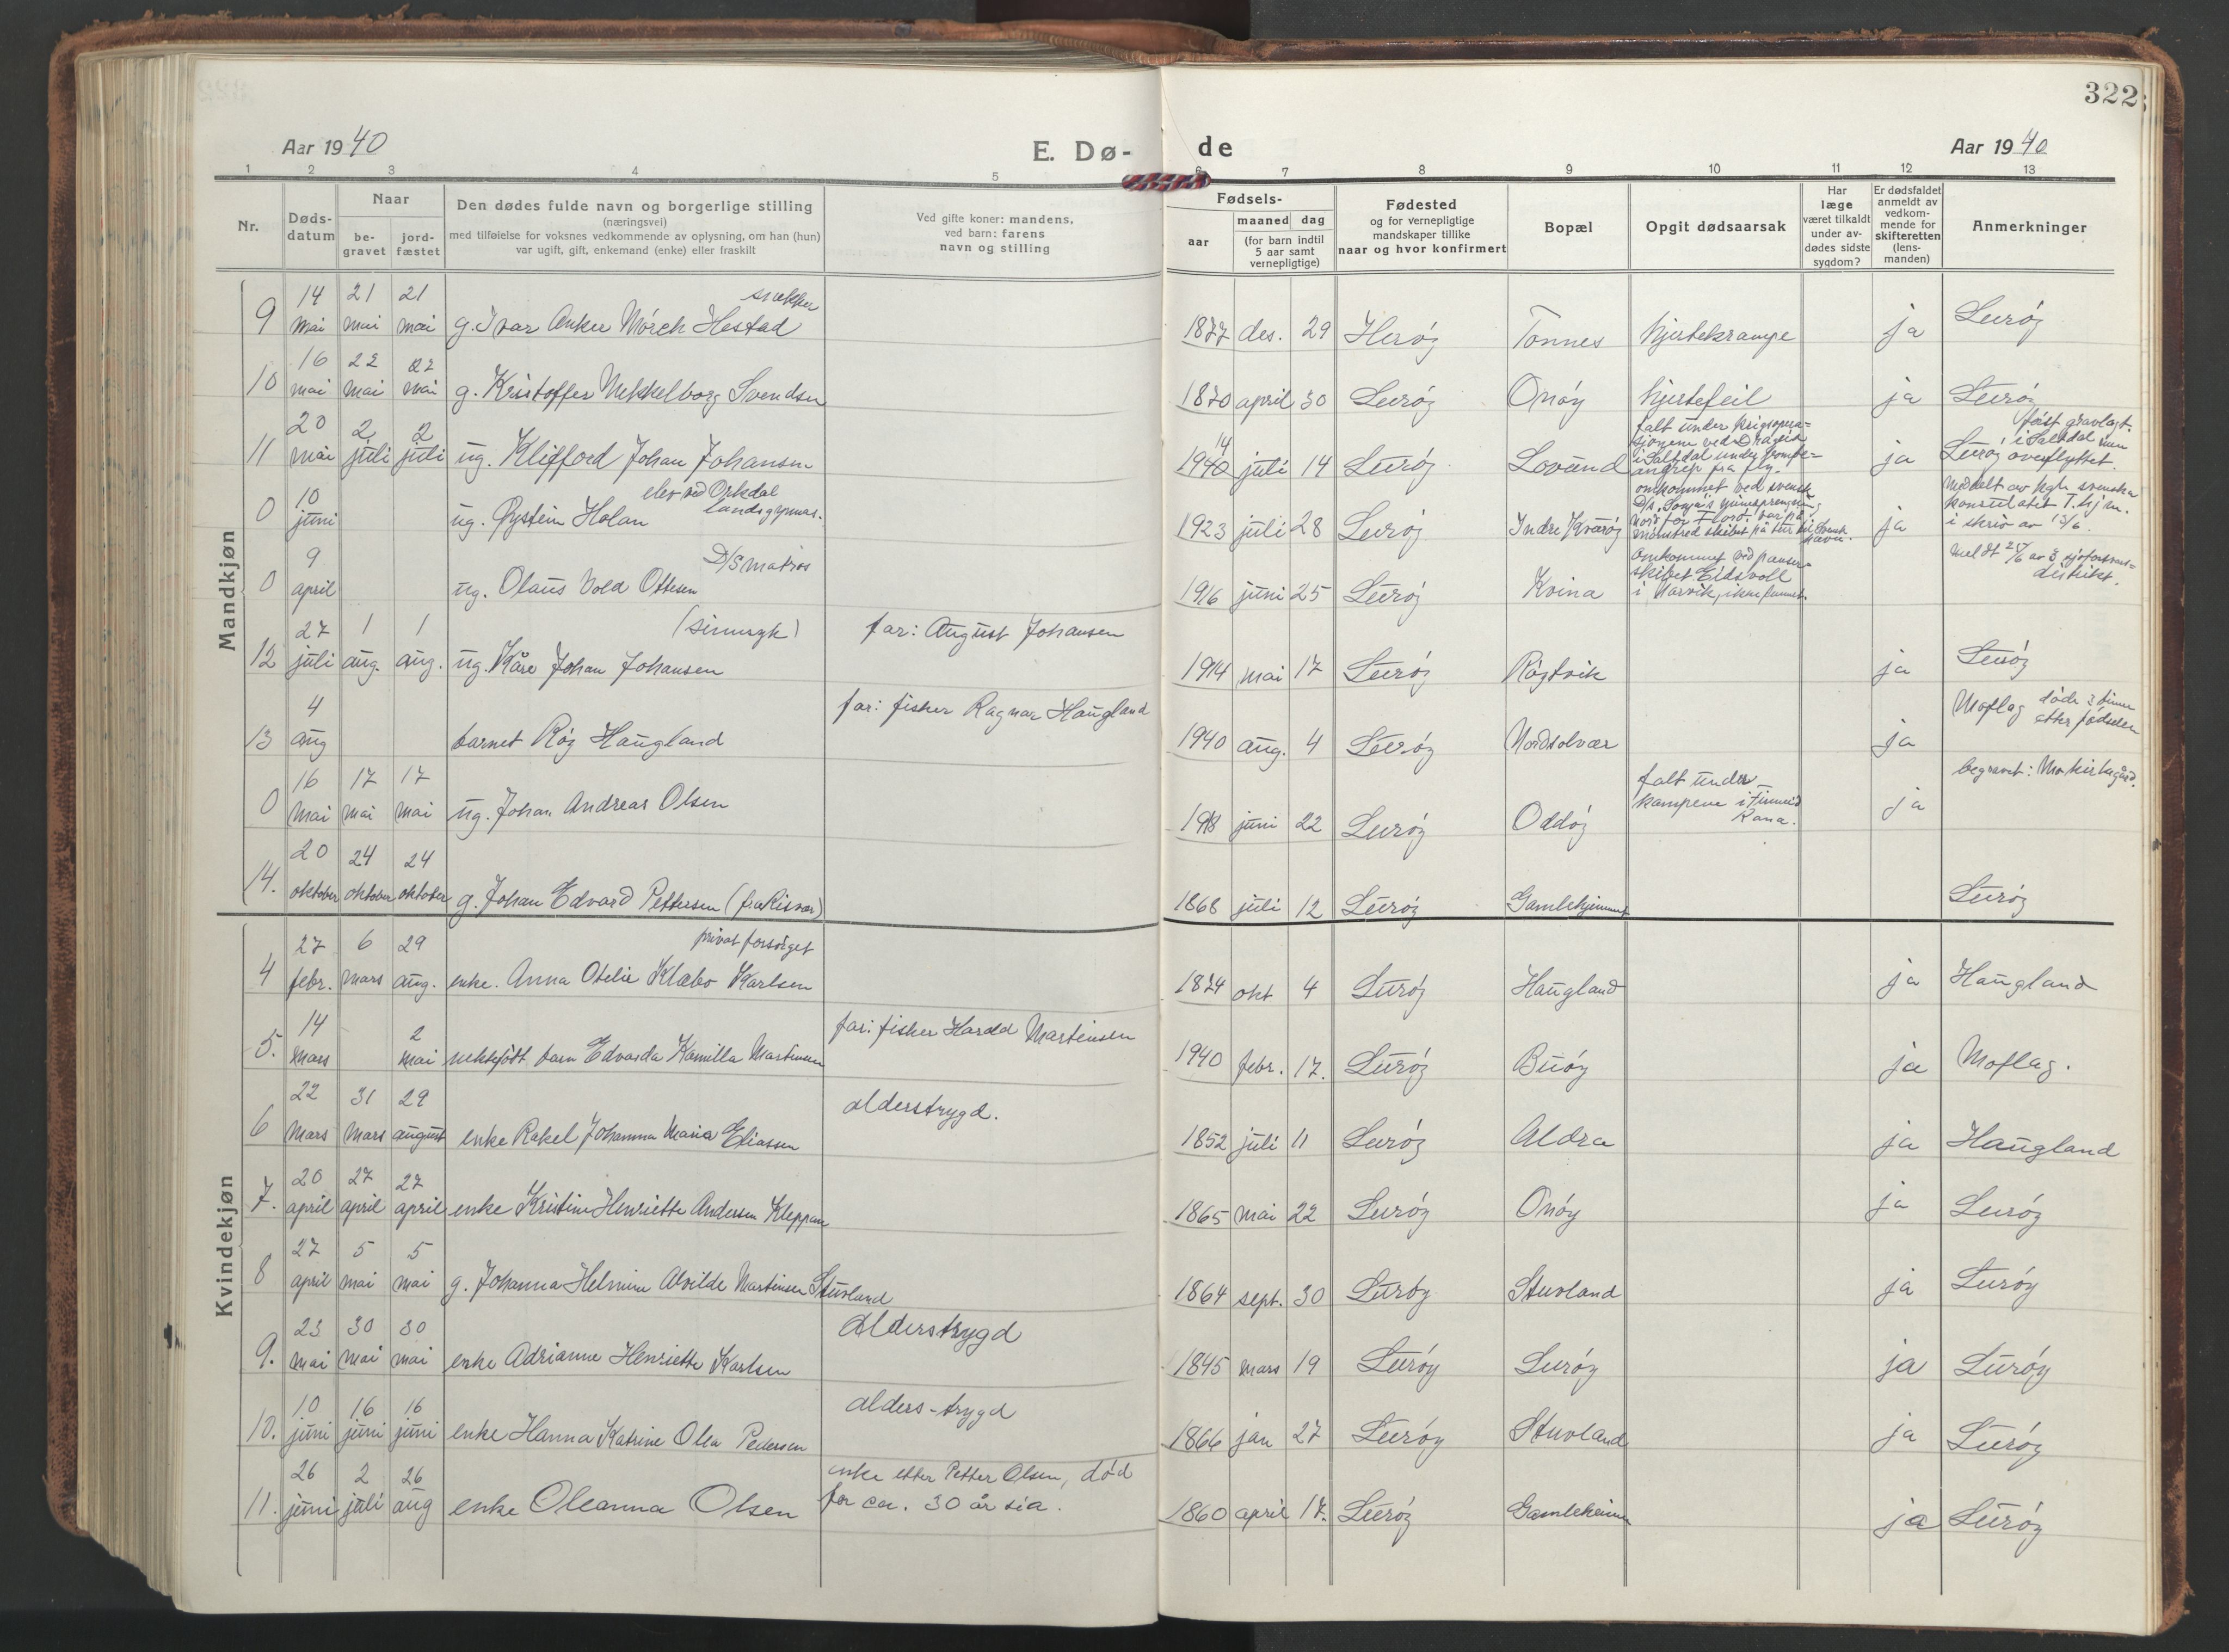 322
Aar 1940
E. Dø-
de
Aar 1940
1 2 3 4 5 6 7 8 9 10 11 12 13
Nr.
Døds-
datum
Naar
be-
gravet
jord-
fæstet
Den dødes fulde navn og borgerlige stilling
(næringsvei)
med tilføielse for voksnes vedkommende av oplysning, om han (hun)
var ugift, gift, enkemand (enke) eller fraskilt
Ved gifte koner: mandens,
ved barn: farens
navn og stilling
Fødsels-
aar
maaned dag
(for barn indtil
5 aar samt
vernepligtige)
Fødested
og for vernepligtige
mandskaper tillike
naar og hvor konfirmert
Bopæl
Opgit dødsaarsak
Har
læge
været tilkaldt
under av-
dødes sidste
sygdom?
Er dødsfaldet
anmeldt av
vedkom-
mende for
skifteretten
(lens-
manden)
Anmerkninger
Mandkjøn
14 21 21 snekker
9 mai mai mai g. Ivar Anker Mörch Hestad 1877 des. 29 Heröy Tonnes hjertekrampe ja Luröy
16 22 22
10 mai mai mai g. Kristoffer Svendsen 1870 april 30 Luröy Onöy hjertefeil ja Luröy
20 2 2
11 mai juli juli ug. Kligfford Johan Johansen 1940 14 juli 14 Luröy Lovund falt under krigsopera-
sjonene ved
i Saltdal under bombe-
angrep fra fly. ja Luröy
först gravlagt
i Saltdal men
overflyttet.
10 elev ved Orkdal
0 juni ug. Øystein Holan landsgymnas. 1923 juli 28 Luröy Indre Kvaröy omkommet ved svensk
D/s "Sonja's" minesprengning
nord for
mönstred skibet på tur til svensk
havn. ja
Meddelt av kgl. svenska
konsulatet T.hjm.
i skriv av 12/6.
9 D/S matros
0 april ug. Olaus Vold Ottesen 1916 juni 25 Luröy Kvina omkommet ved panser-
skibet Eidsvoll
i Narvik, ikke funnet.
meldt 25/6 av 3 sjøforsvars-
distrikt.
27 1 1 (sinnsyk) far: August Johansen
12 juli aug. aug. ug. Kåre Johan Johansen 1914 mai 17 Luröy Röytvik ja Luröy
4 far: fisker Ragnar Haugland
13 aug barnet Röy Haugland 1940 aug. 4 Luröy Nordsolvær ja
Moflag döde 2 timer
etter födselen
16 17 17
0 mai mai mai ug. Johan Andreas Olsen 1918 juni 22 Luröy Oddöy falt under
kampene i Finneid
Rana. ja
begravet: Mo kirkegård.
20 24 24
14. oktober oktober oktober g. Johan Edvard Pettersen (fra Risvær) 1868 juli 12 Luröy Gamlehjemmet Luröy
Kvindekjøn
27 6 29 privat forsörget
4 febr. mars aug. enke. Anna Otelie Klæbo Karlsen 1874 okt 4 Luröy Haugland ja Haugland
14 2 far: fisker Harald Martinsen
5. mars mai ektefödt barn Edvarda Kamilla Martinsen 1940 febr. 17. Luröy Buöy ja Moflag.
22 31 29 alderstrygd.
6 mars mars august enke Rakel Johanna Maria Eliassen 1852 juli 11 Luröy Aldra ja Haugland
20 27 27
7. april april april enke Kristine Henriette Andersen Kleppan 1865 mai 22 Luröy Onöy ja Luröy
27 5 5
8 april mai mai g. Johanna Helmine Alvilde Martinsen Stuvland 1864 sept. 30 Luröy Stuvland ja Luröy
23 30 30 Alderstrygd
9. mai mai mai enke Adrianne Henriette Karlsen 1845 mars 19 Luröy Luröy ja Luröy
10 16 16 alders-trygd
10. juni juni juni enke Hanna Katrine Olea Pedersen 1866 jan 27 Luröy Stuvland ja Luröy
26 2 26 enke etter Petter Olsen, död
11. juni juli aug enke Oleanna Olsen for ca. 30 år sia. 1860 april 17. Luröy Gamleheimen ja Luröy